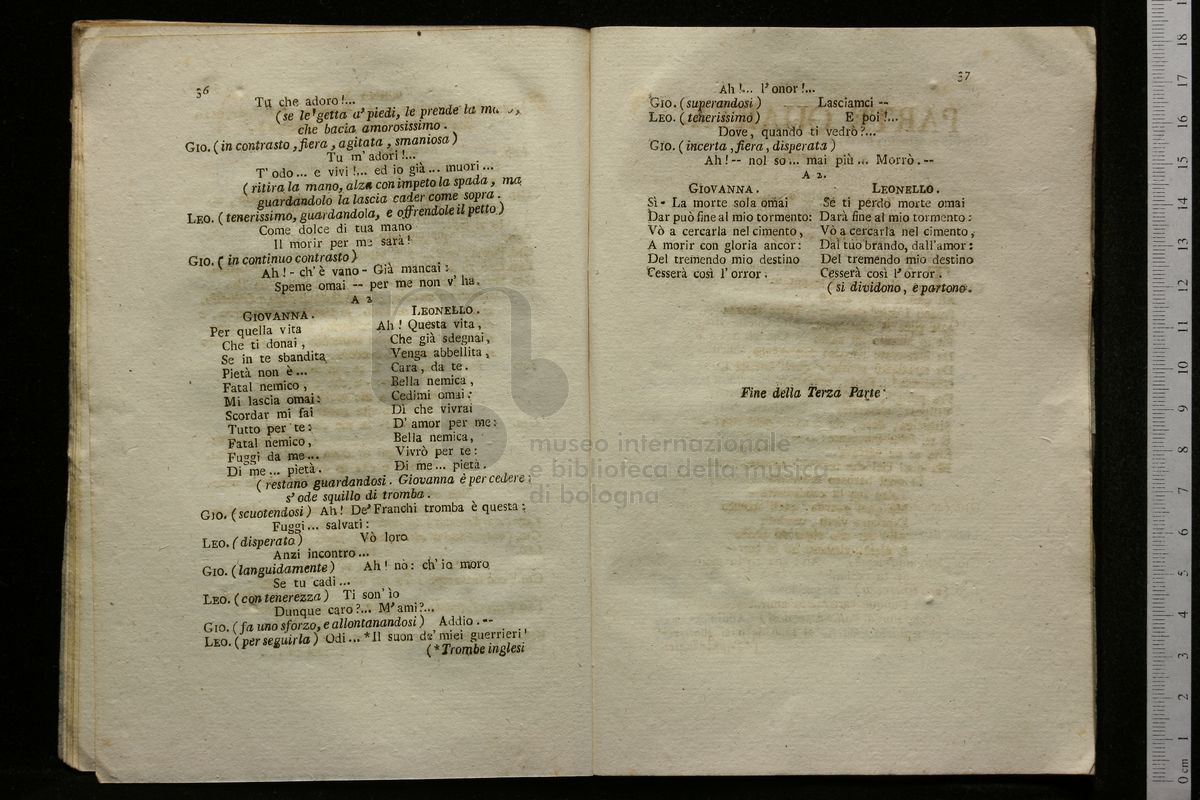 36
Tu che adoro!...
(se le getta a' piedi, le prende la
che bacia amorosissimo.
GIO. (in contrasto, fiera, agitata, smaniosa)
Tu m' adori!...
T' odo... e vivi!... ed io già... muori...
(ritira la mano, alza con impeto la spada, ma
guardandolo la lascia cader come sopra.
LEO. (tenerissimo, guardandola, e offrendole il petto)
Come dolce di tua mano
Il morir per me sarà!
GIO. (in continuo contrasto)
Ah! - ch' è vano - Già mancai:
Speme omai -- per me non v' ha.
A 2
GIOVANNA.
Per quella vita
Che ti donai,
Se in te sbandita
Pietà non è...
Fatal nemico,
Mi lascia omai:
Scordar mi fai
Tutto per te:
Fatal nemico,
Fuggi da me...
Di me... pietà.
LEONELLO.
Ah! Questa vita,
Che già sdegnai,
Venga abbellita,
Cara, da te.
Bella nemica,
Cedimi omai:
Di che vivrai
D' amor per me:
Bella nemica,
Vivrò per te:
Di me... pieta.
(restano guardandosi. Giovanna è per cedere:
s' ode squillo di tromba.
GIO. (scuotendosi) Ah! De' Franchi tromba è questa:
Fuggi... salvati:
LEO. (disperato) Vò loro
Anzi incontro...
GIO. (languidamente) Ah! nò: ch' io moro
Se tu cadi...
LEO. (con tenerezza) Ti son' io
Dunque caro?... M' ami?...
GIO. (fa uno sforzo, e allontanandosi) Addio. --
LEO. (per seguirla) Odi... *Il suon de' miei guerrieri!
(*Trombe inglesi
37
Ah!... l' onor!...
GIO. (superandosi) Lasciamci --
LEO. (tenerissimo) E poi!...
Dove, quando ti vedrò?...
GIO. (incerta, fiera, disperata)
Ah! -- nol so... mai più... Morrò. --
A 2.
GIOVANNA.
Sì - La morte sola omai
Dar può fine al mio tormento:
Vò a cercarla nel cimento,
A morir con gloria ancor:
Del tremendo mio destino
Cesserà così l' orror.
LEONELLO.
Se ti perdo morte omai
Darà fine al mio tormento:
Vò a cercarla nel cimento,
Dal tuo brando, dall' amor:
Del tremendo mio destino
Cesserà così l' orror.
(si dividono, e partono.
Fine della Terza Parte
museo internazionale
e biblioteca della musica
di bologna
0 cm 1 2 3 4 5 6 7 8 9 10 11 12 13 14 15 16 17 18